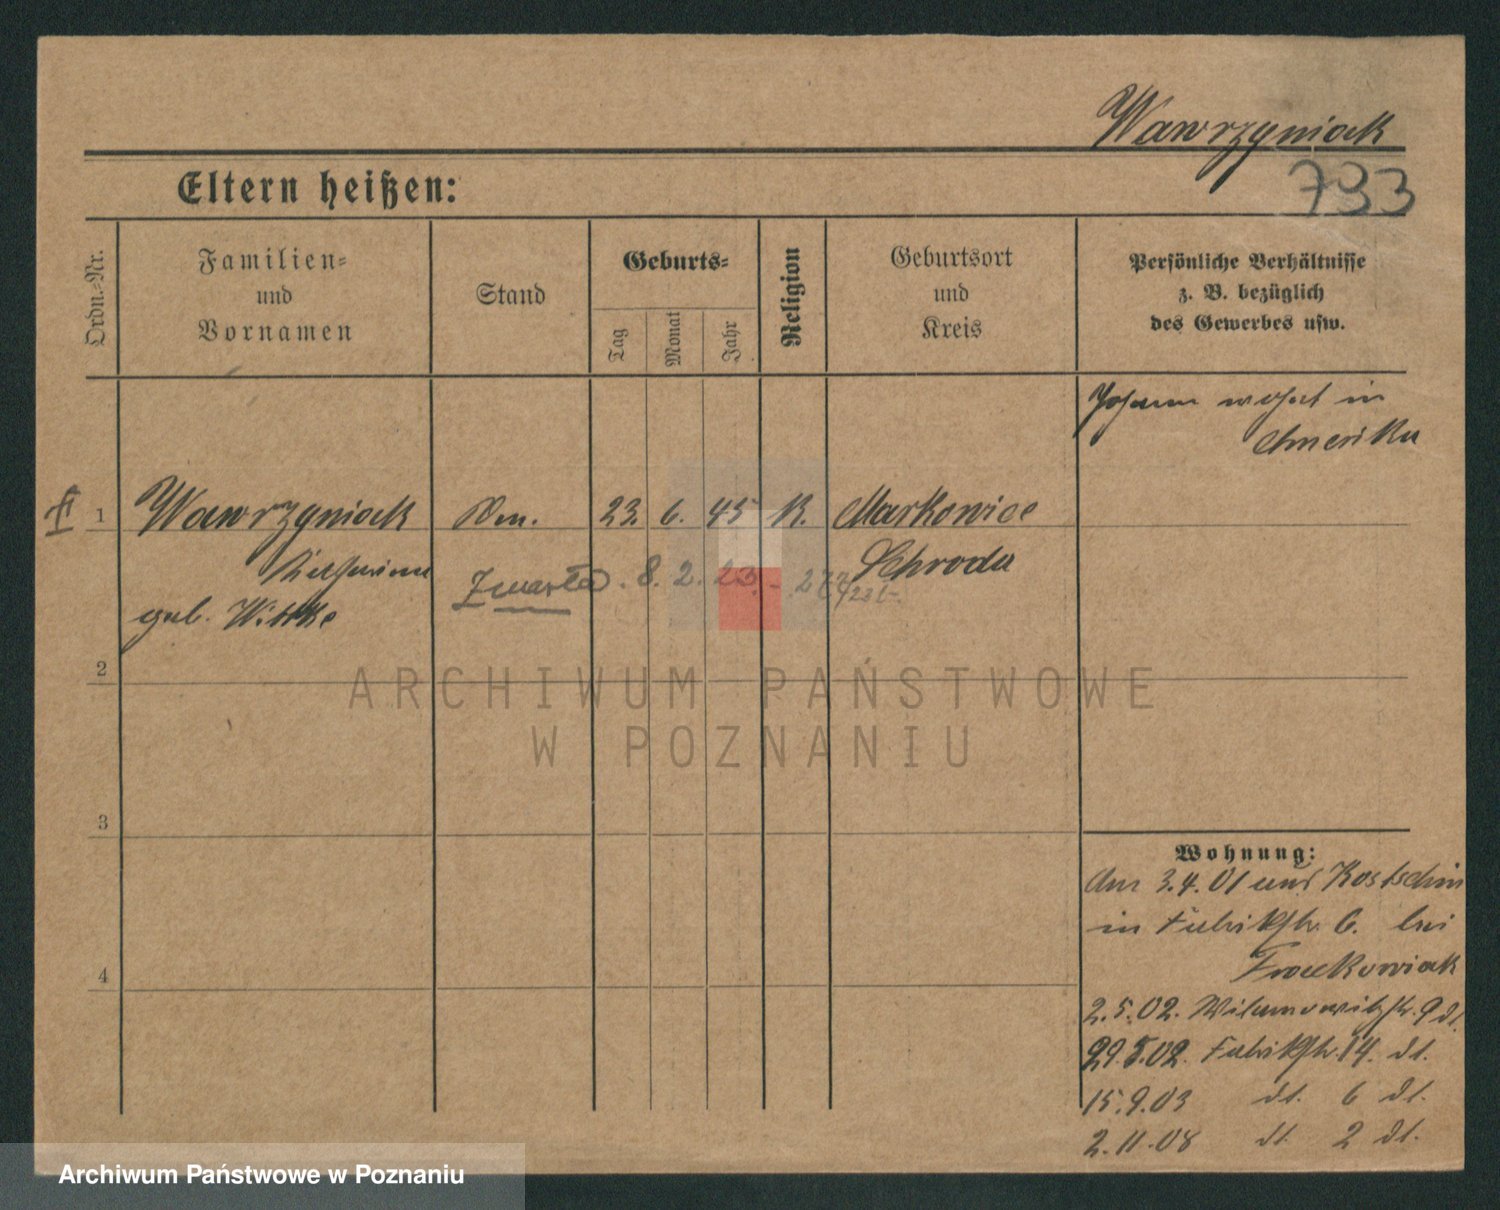 Wawrzyniak
793
Eltern heißen:
Ordn.-Nr.
Familien-
und
Vornamen
Stand
Geburts-
Tag
Monat
Jahr
Religion
Geburtsort
und
Kreis
Persönliche Verhältnisse
z. B. bezüglich
des Gewerbes usw.
Johann wohnt in
Amerika
1 Wawrzyniak 23. 6. 45 K. Markowice
Katharina Schroda
geb. Wittke
Zmarła 8. 2. 23
2
3
4
Wohnung:
Am 3.4.01 aus Kostschin
in Fabrikstr. 6. bei
Frackowiak
2.5.02. Wilamowitzstr. 9 dt.
29.5.02. Fabrikstr. 14. dt.
15.9.03 dt. 6 dt.
2.11.08 dt. 2 dt.
ARCHIWUM PAŃSTWOWE
W POZNANIU
Archiwum Państwowe w Poznaniu